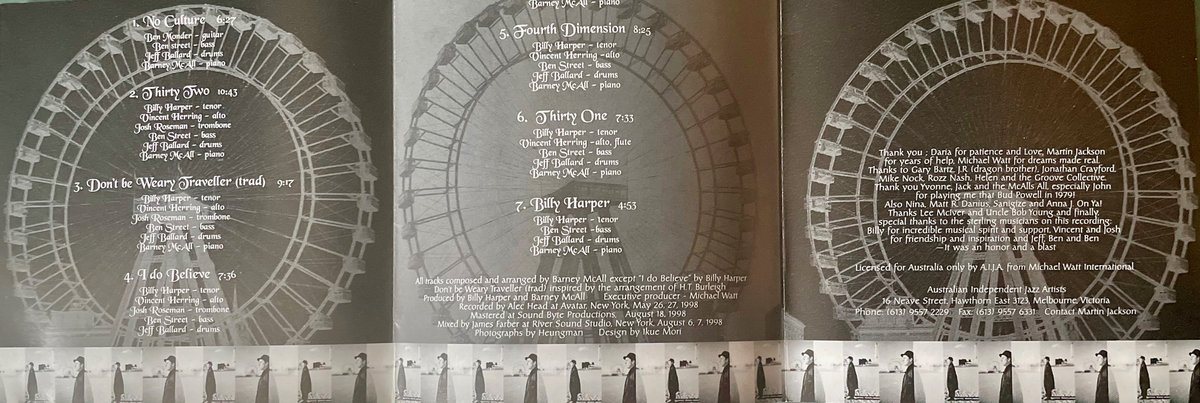 1. No Culture 6:27
Ben Monder - guitar
Ben street - bass
Jeff Ballard - drums
Barney McAll - piano
2. Thirty Two 10:43
Billy Harper - tenor
Vincent Herring - alto
Josh Roseman - trombone
Ben Street - bass
Jeff Ballard - drums
Barney McAll - piano
3. Don't be Weary Traveller (trad) 9:17
Billy Harper - tenor
Vincent Herring - alto
Josh Roseman - trombone
Ben Street - bass
Jeff Ballard - drums
Barney McAll - piano
4. I do Believe 7:36
Billy Harper - tenor
Vincent Herring - alto
Josh Roseman - trombone
Ben Street - bass
Jeff Ballard - drums
Barney McAll - piano
5. Fourth Dimension 8:25
Billy Harper - tenor
Vincent Herring -alto
Ben Street - bass
Jeff Ballard - drums
Barney McAll - piano
6. Thirty One 7:33
Billy Harper - tenor
Vincent Herring -alto, flute
Ben Street - bass
Jeff Ballard - drums
Barney McAll - piano
7. Billy Harper 4:53
Billy Harper - tenor
Ben Street - bass
Jeff Ballard - drums
Barney McAll - piano
All tracks composed and arranged by Barney McAll except "I do Believe" by Billy Harper
Don't be Weary Traveller (trad) inspired by the arrangement of H.T. Burleigh
Produced by Billy Harper and Barney McAll Executive producer - Michael Watt
Recorded by Alec Head at Avatar, New York, May 26, 27, 1998
Mastered at Sound Byte Productions, August 18, 1998
Mixed by James Farber at River Sound Studio, New York, August 6, 7, 1998
Photographs by Heungman Design by Ikue Mori
Thank you ; Daria for patience and Love, Martin Jackson
for years of help, Michael Watt for dreams made real.
Thanks to Gary Bartz, J.R (dragon brother), Jonathan Crayford,
Mike Nock, Rozz Nash, Helen and the Groove Collective.
Thank you Yvonne, Jack and the McAlls All, especially John
for playing me that Bud Powell in 1979!
Also Nina, Matt R. Danius, Sanigize and Anna J. On Ya!
Thanks Lee McIver and Uncle Bob Young and finally,
special thanks to the sterling musicians on this recording;
Billy for incredible musical spirit and support, Vincent and Josh
for friendship and inspiration and Jeff, Ben and Ben
—It was an honor and a blast
Licensed for Australia only by A.I.J.A. from Michael Watt International
Australian Independent Jazz Artists
16 Neave Street, Hawthorn East 3123, Melbourne, Victoria
Phone: (613) 9557 2229 Fax: (613) 9557 6331 Contact Martin Jackson